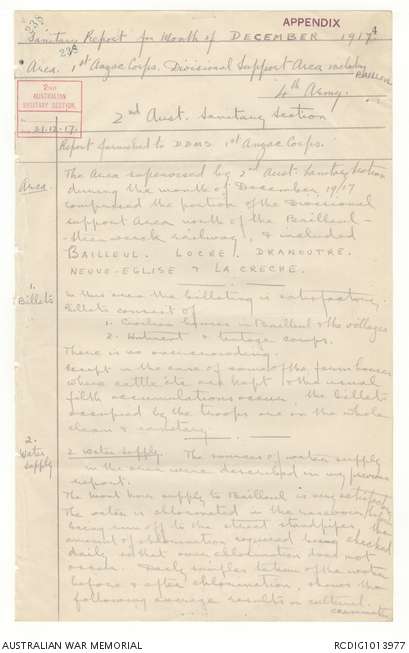 APPENDIX 4
Sanitary Report for Month of DECEMBER 1917
Area. 1st Anzac Corps. Divisional Support Area including BAILLEUL
4th Army.
2ND
AUSTRALIAN
SANITARY SECTION.
21.12.17.
2nd Aust. Sanitary Section
Report furnished to DDMS 1st Anzac Corps.
Area.
The Area supervised by 2nd Aust Sanitary Section
during the month of December 1917
comprised the portion of the Divisional
support Area north of the Bailleul -
railway, & included
BAILLEUL. LOCRE. DRANOUTRE.
NEUVE-EGLISE & LA CRECHE.
1.
Billets
In this area the billeting is satisfactory.
Billets consist of
1. Civilian houses in Bailleul & the villages
2. Hutment & tentage camps.
There is no overcrowding.
Except in the case of some of the farm houses
where cattle etc are kept & the usual
filth accumulations occur, the billets
occupied by the troops are on the whole
clean & sanitary
2.
Water
Supply
2 Water Supply. The sources of water supply
in the area were described in my previous
report.
The main supply to Bailleul is very satisfactory
The water is chlorinated in the reservoirs
being run off to the street standpipes, the
amount of chlorination required being checked
daily so that over chlorination does not
occur. Daily samples taken of the water
before & after chlorination, shows the
following average results in cultural
AUSTRALIAN WAR MEMORIAL
RCDIG1013977